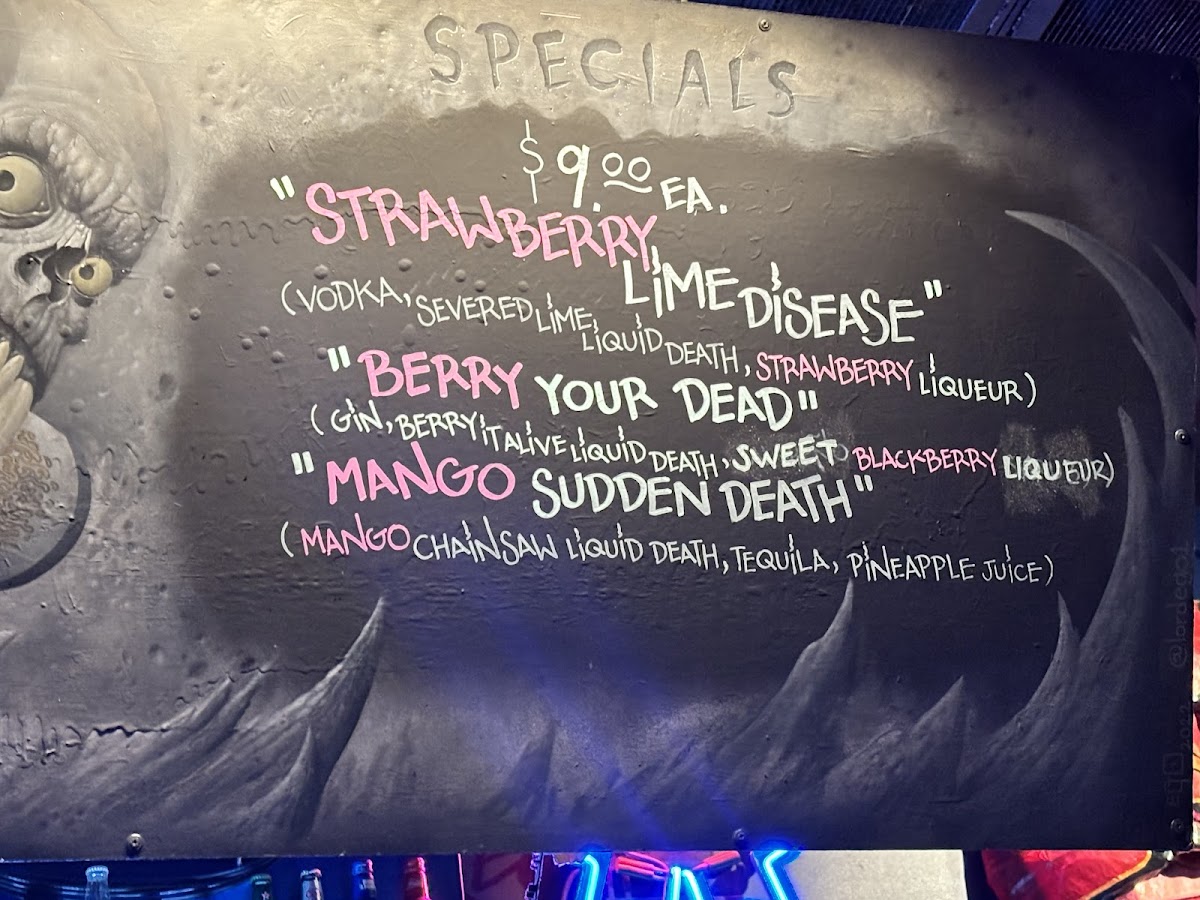 SPECIALS
$9.00 EA.
"STRAWBERRY
LIME DISEASE"
(VODKA, SEVERED LIME LIQUID DEATH, STRAWBERRY LIQUEUR)
"BERRY YOUR DEAD"
(GIN, BERRY IT ALIVE LIQUID DEATH, SWEET BLACKBERRY LIQUEUR)
"MANGO SUDDEN DEATH"
(MANGO CHAINSAW LIQUID DEATH, TEQUILA, PINEAPPLE JUICE)